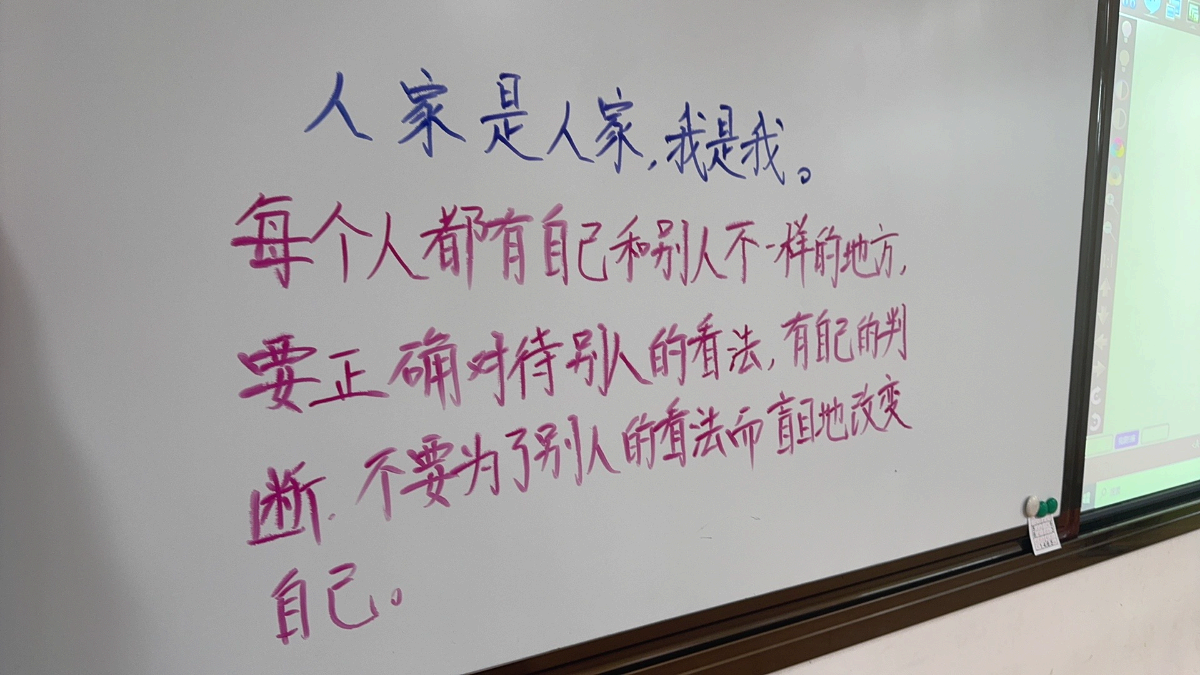 人家是人家,我是我。
每个人都有自己和别人不一样的地方,
要正确对待别人的看法,有自己的判
断.不要为了别人的看法而盲目地改变
自己。